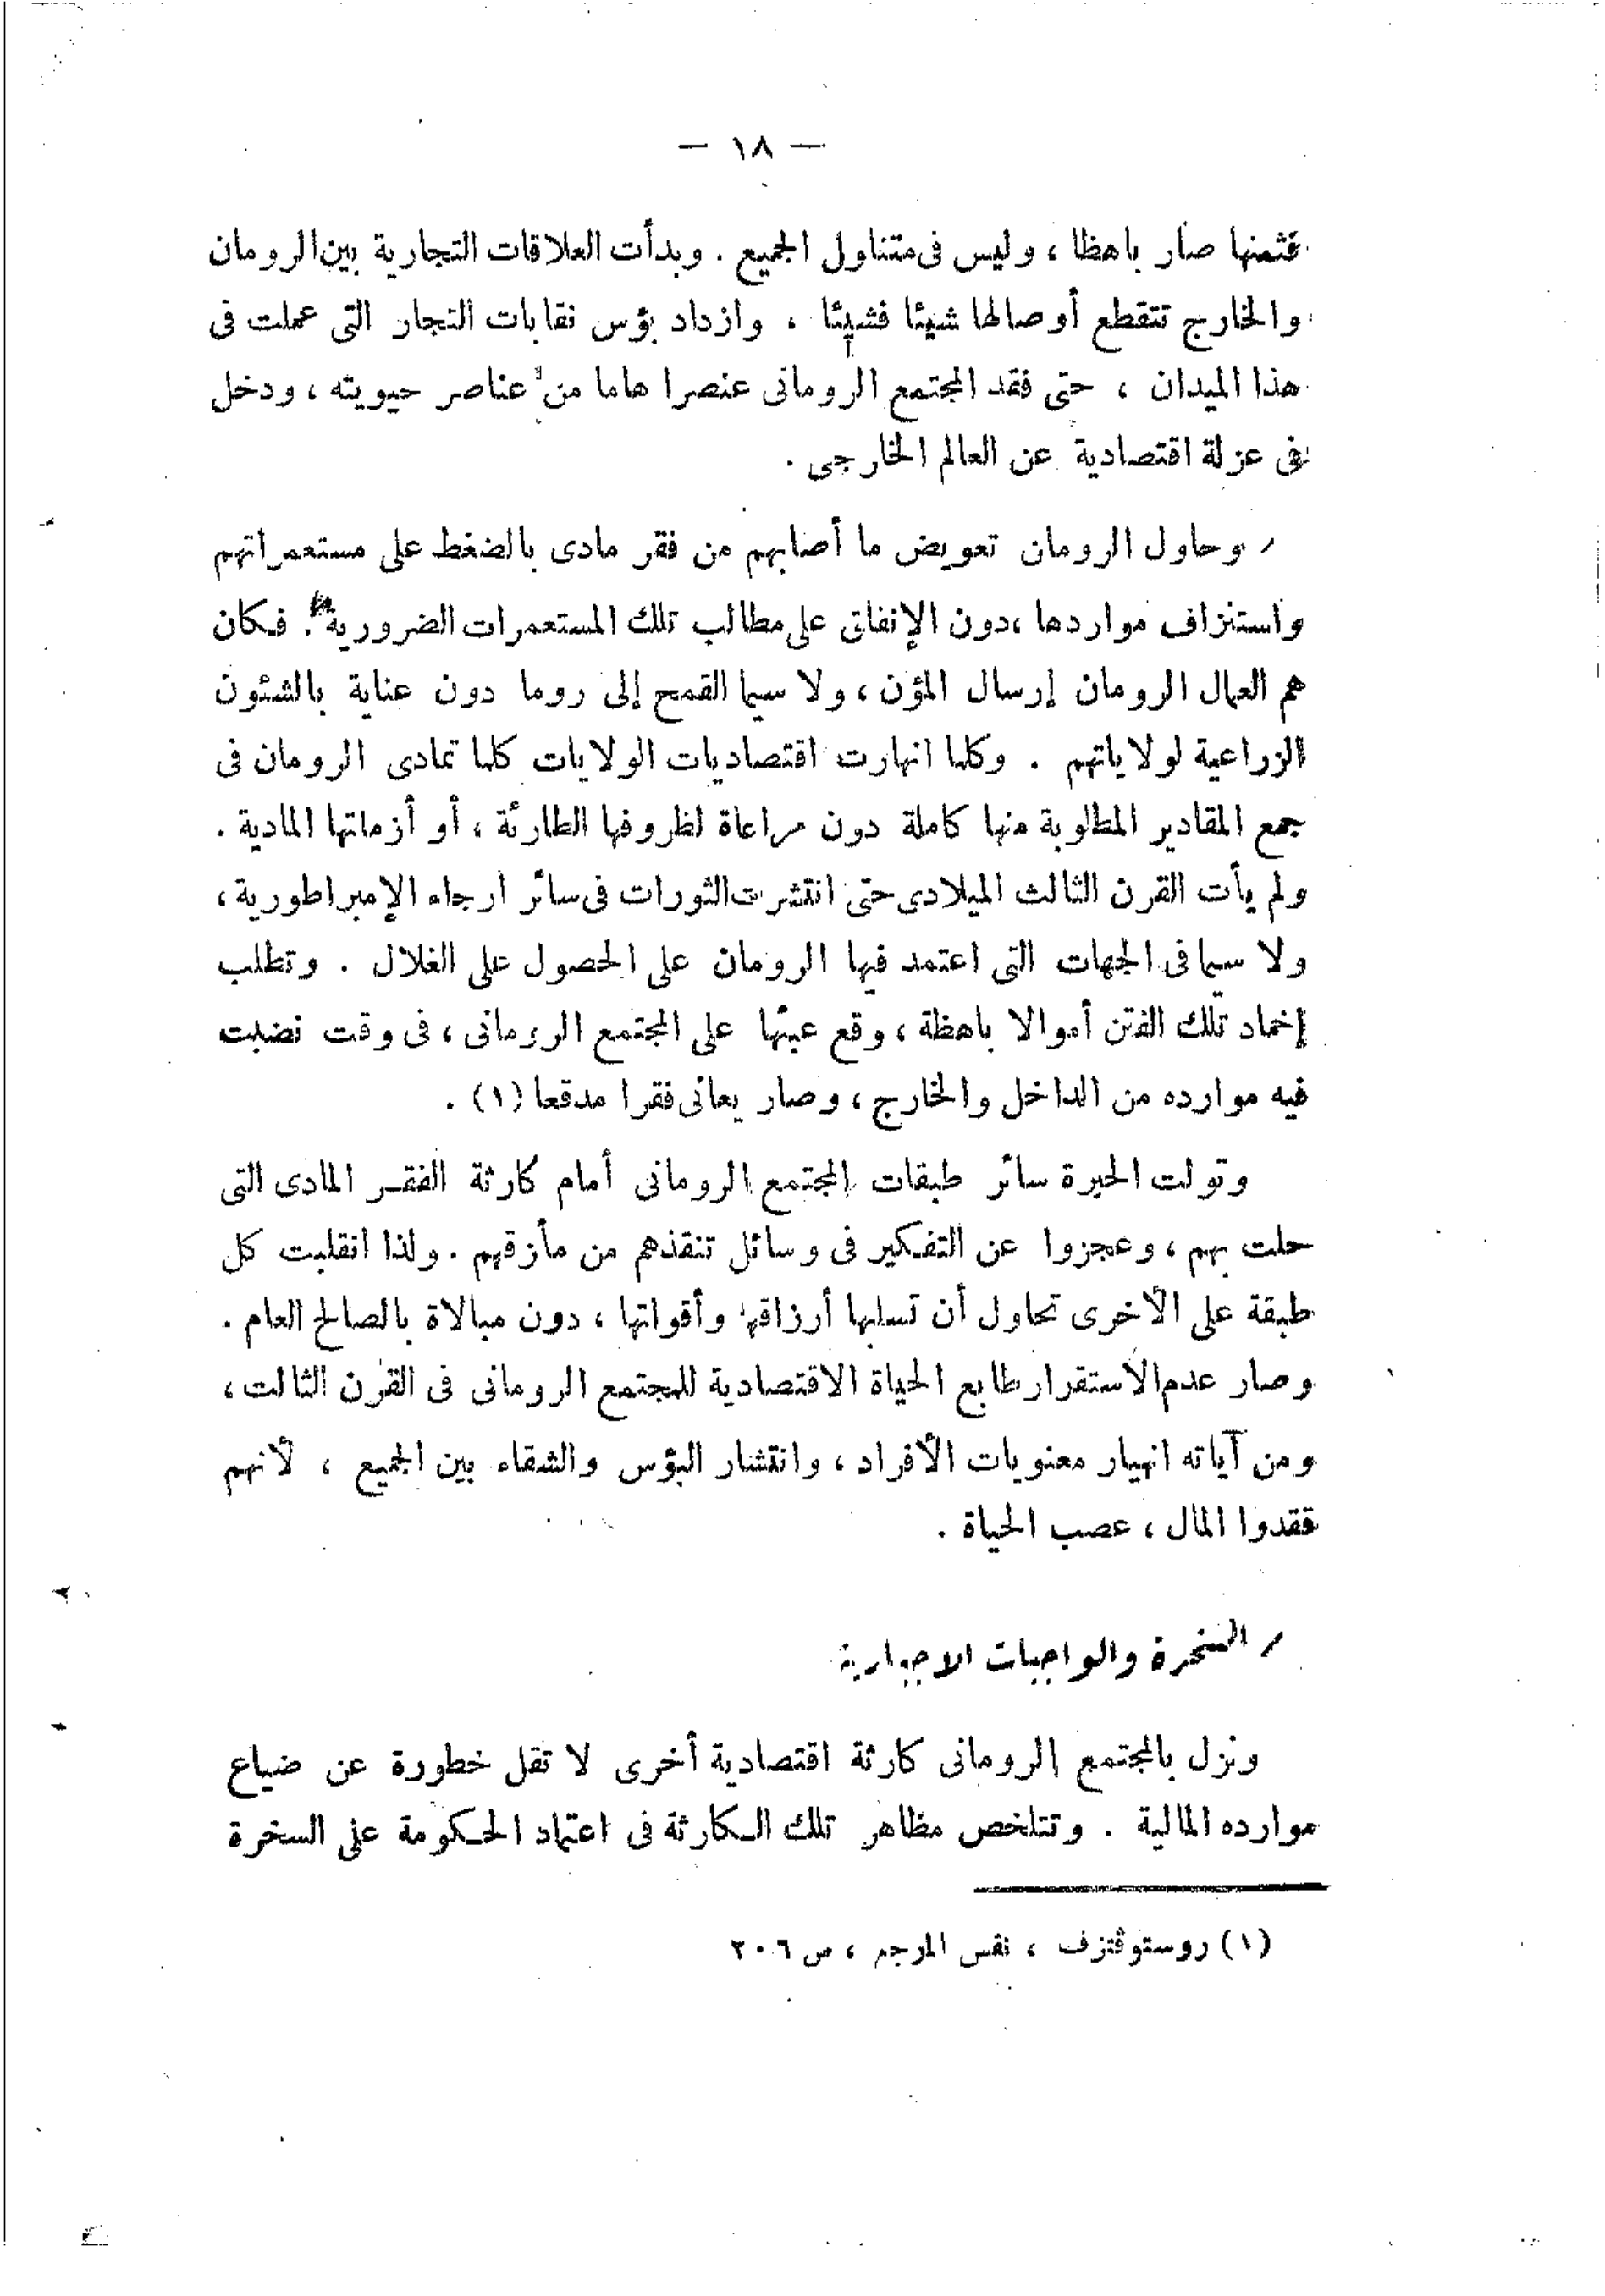 — ١٨ —
فثمنها صار باهظا ، وليس فى متناول الجميع . وبدأت العلاقات التجارية بين الرومان
والخارج تتقطع أوصالها شيئا فشيئا ، وازداد بؤس نقابات التجار التى عملت فى
هذا الميدان ، حتى فقد المجتمع الرومانى عنصرا هاما من عناصر حيويته ، ودخل
فى عزلة اقتصادية عن العالم الخارجى .
وحاول الرومان تعويض ما أصابهم من فقر مادى بالضغط على مستعمراتهم
واستنزاف مواردها ، دون الإنفاق على مطالب تلك المستعمرات الضرورية . فكان
هم العمال الرومان إرسال المؤن ، ولا سيما القمح إلى روما دون عناية بالشئون
الزراعية لولاياتهم . وكلما انهارت اقتصاديات الولايات كلما تمادى الرومان فى
جمع المقادير المطلوبة منها كاملة دون مراعاة لظروفها الطارئة ، أو أزماتها المادية .
ولم يأت القرن الثالث الميلادى حتى انتشرت الثورات فى سائر ارجاء الإمبراطورية ،
ولا سيما فى الجهات التى اعتمد فيها الرومان على الحصول على الغلال . وتطلب
إخماد تلك الفتن أموالا باهظة ، وقع عبئها على المجتمع الرومانى ، فى وقت نضبت
فيه موارده من الداخل والخارج ، وصار يعانى فقرا مدقعا (١) .
وتولت الحيرة سائر طبقات المجتمع الرومانى أمام كارثة الفقر المادى التى
حلت بهم ، وعجزوا عن التفكير فى وسائل تنقذهم من مأزقهم . ولذا انقلبت كل
طبقة على الأخرى تحاول أن تسلبها أرزاقها وأقواتها ، دون مبالاة بالصالح العام .
وصار عدم الاستقرار طابع الحياة الاقتصادية للمجتمع الرومانى فى القرن الثالث ،
ومن آياته انهيار معنويات الأفراد ، وانتشار البؤس والشقاء بين الجميع ، لأنهم
فقدوا المال ، عصب الحياة .
السخرة والواجبات الاجبارية
ونزل بالمجتمع الرومانى كارثة اقتصادية أخرى لا تقل خطورة عن ضياع
موارده المالية . وتتلخص مظاهر تلك الكارثة فى اعتماد الحكومة على السخرة
(١) روستوفتزف ، نفس المرجع ، ص ٢٠٦